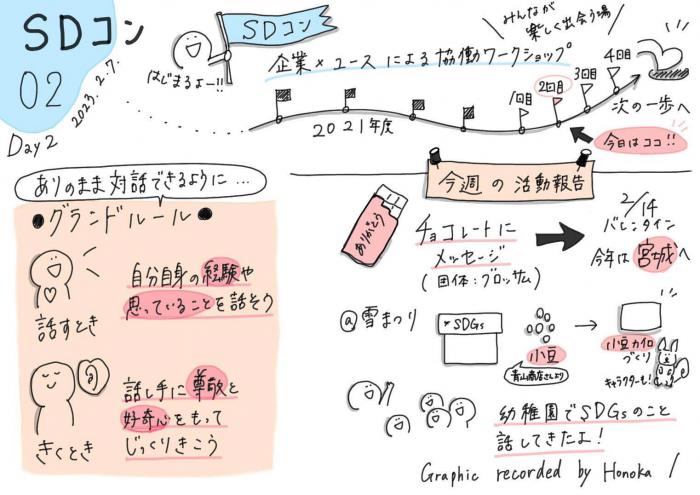 SDコン
02
2023.2.7.
Day2
はじまるよー!!
SDコン
みんなが
楽しく出会う場
企業×ユースによる協働ワークショップ
2021年度
1回目
2回目
3回目
4回目
次の一歩へ
今日はココ!!
ありのまま対話できるように…
●グランドルール●
話すとき
自分自身の経験や
思っていることを話そう
きくとき
話し手に尊敬と
好奇心をもって
じっくりきこう
今週の活動報告
ありがとう
チョコレートに
メッセージ
(団体:ブロッサム)
2/14
バレンタイン
今年は宮城へ
@雪まつり
*SDGs
小豆
青山商店さんより
小豆カイロ
づくり
キャラクターも!
幼稚園でSDGsのこと
話してきたよ!
Graphic recorded by Honoka